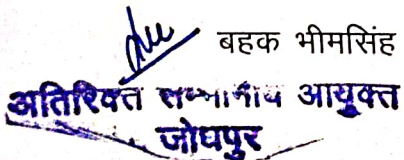 बहक भीमसिंह
अतिरिक्त सम्भागीय आयुक्त
जोधपुर